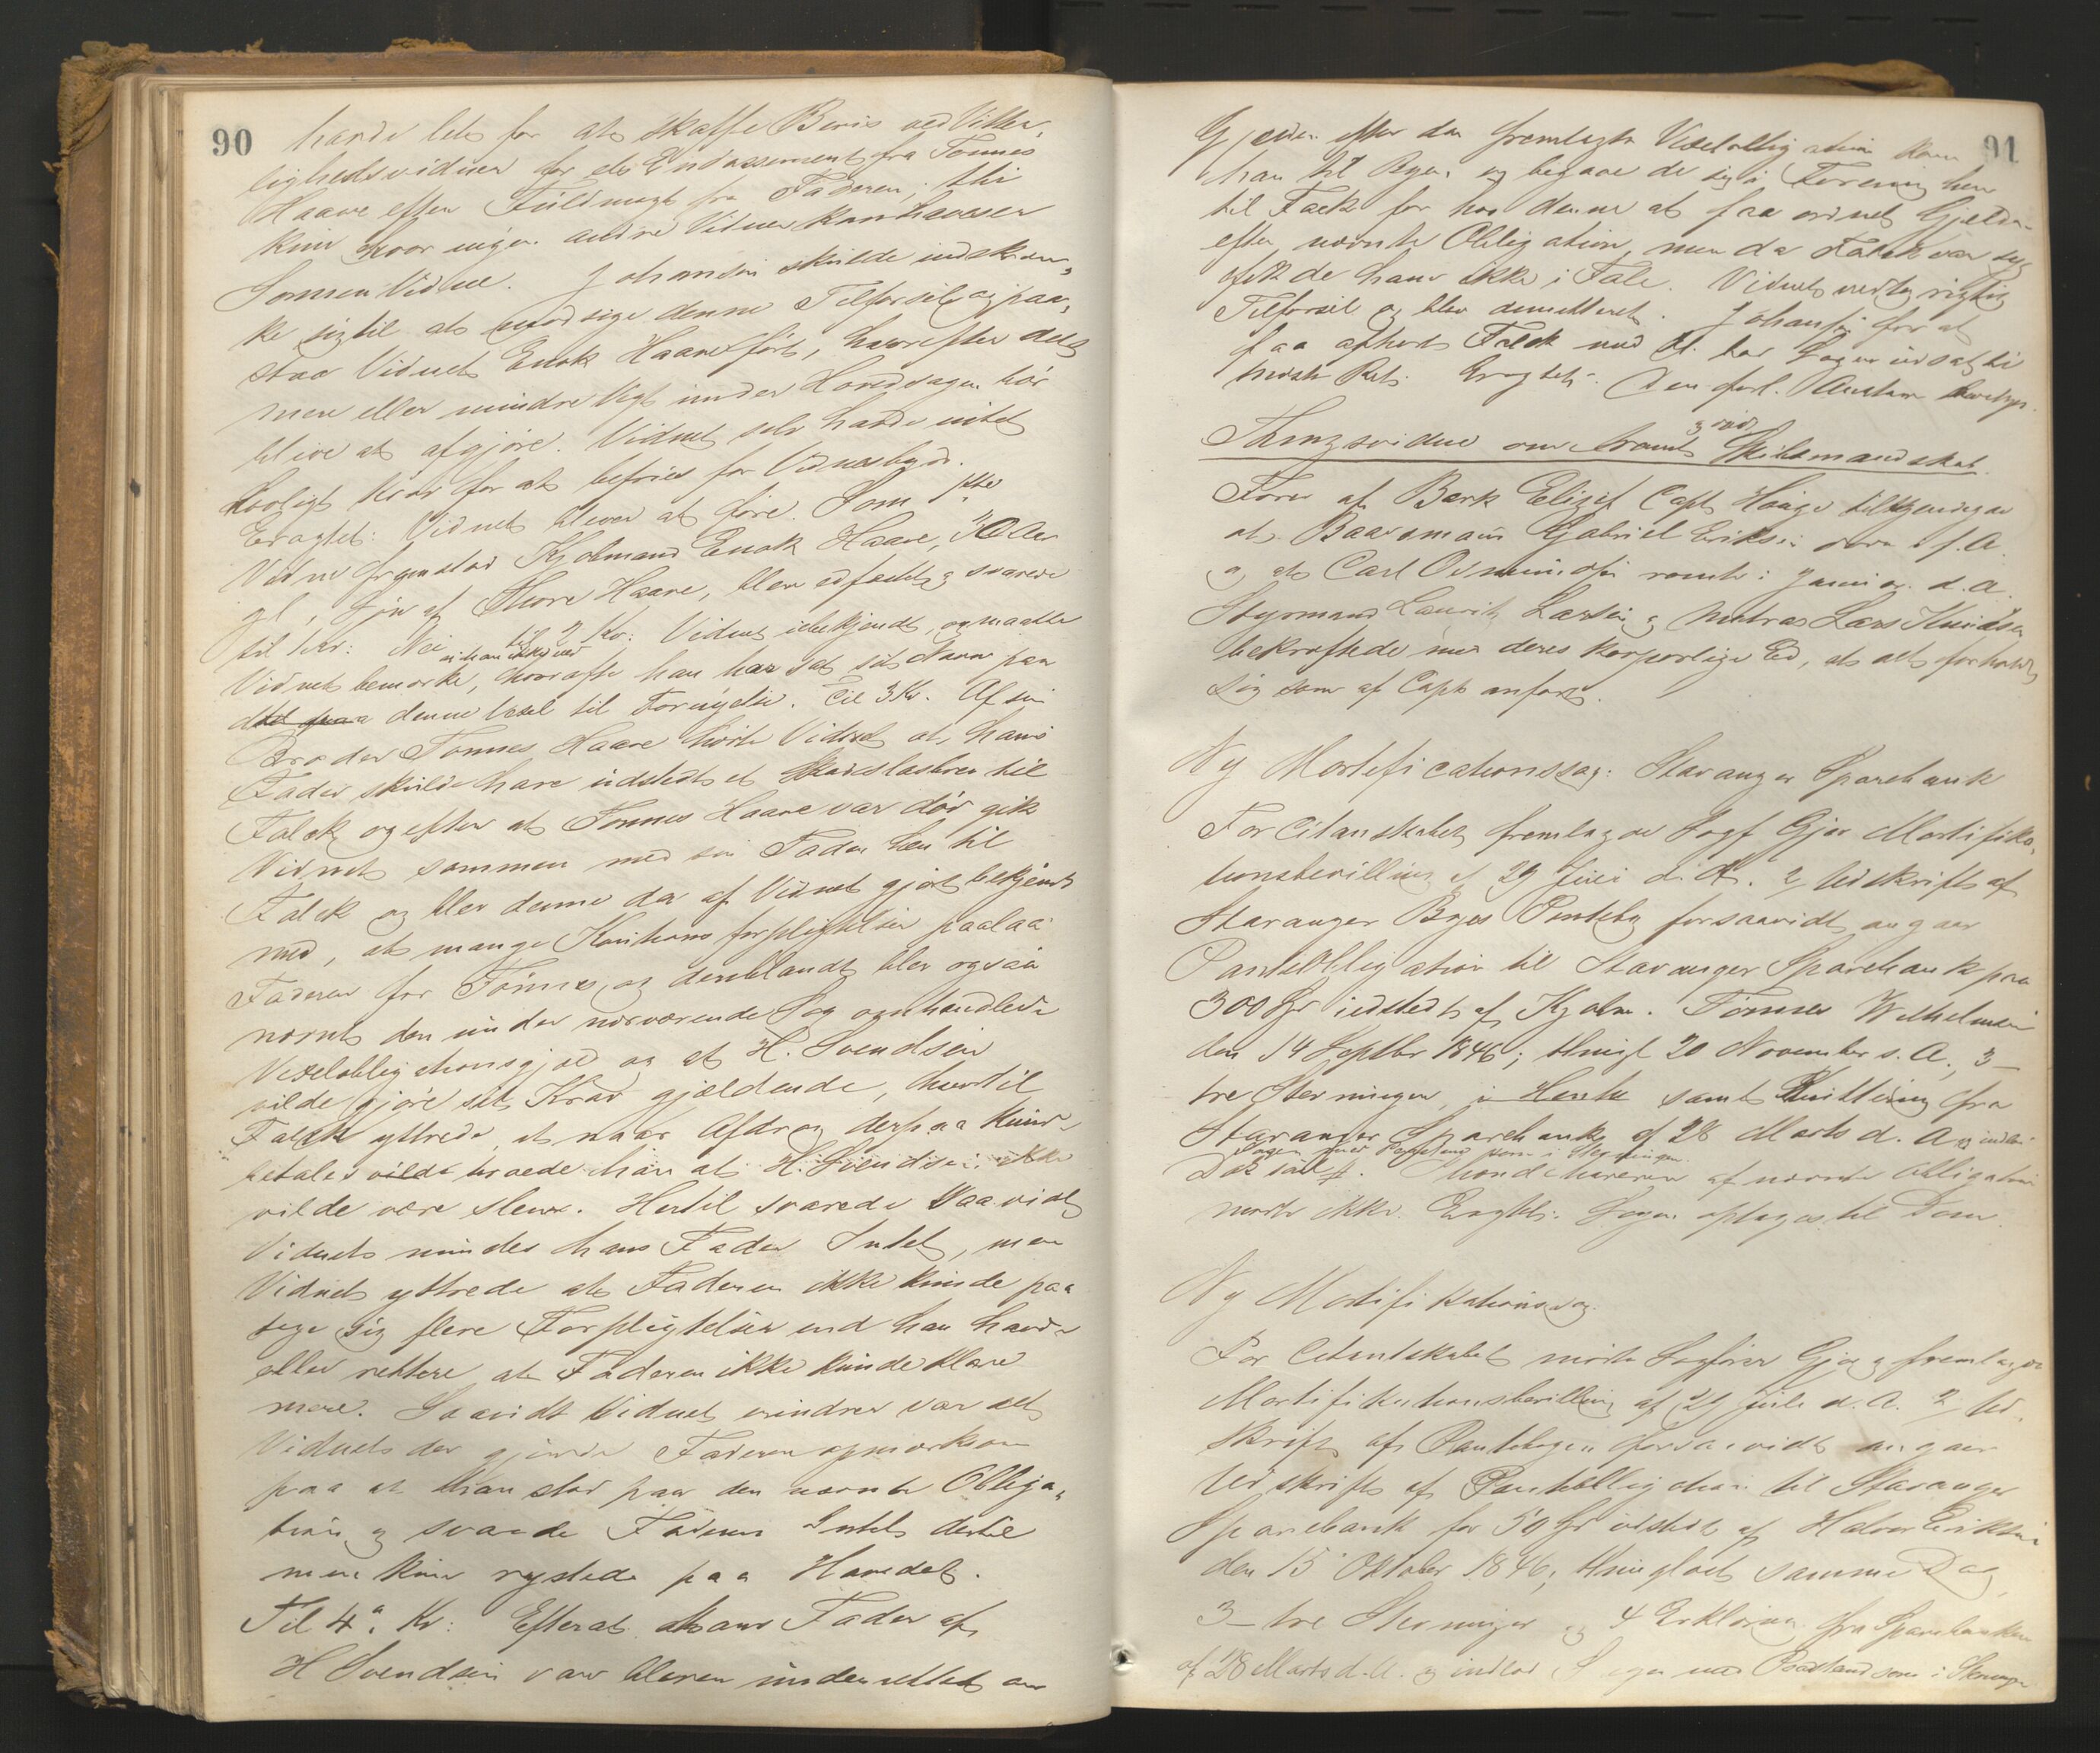 90
havde let for at skaffe Bevis ved Vitter,
lighedsvidner for et Endossement fra Tønnes
Haave efter Fuldmagt fra Faderen; thi
kun hvor ingen andre Vidner kan haves er
Sønnen Vidne. Johansen skulde indskræn,
ke sig til at modsige denne Tilførsel og paa,
staa Vidnet Enok Haave ført, hvorefter dets
mere eller mindre Vægt under Hovedsagen bør
blive at afgjøre. Vidnet selv havde intet
lovligt Krav for at befries for Vidnesbyrd.
Eragtet: Vidnet bliver at føre. Som 1ste
Vidne fremstod Kjøbmand Enok Haave, Aar
gl, Søn af Thore Haave, blev edfæstet og svarede
til 1 Kv: Nei til 2 Kv: Vidnet ubekjendt, og maatte
Vidnet bemærke, hvorofte han har sat sit Navn paa
denne Vexel til Fornyelse. Til 3 Kv. Af sin
Broder Tønnes Haave hørte Vidnet at, hans
Fader skulde have udstedt et Skadesløsbrev til
Falck og efter at Tønnes Haave var død gik
Vidnet sammen med sin Fader hen til
Falck og blev denne da af Vidnet gjort bekjendt
med, at mange Kautions forpligtelser paalaa
Faderen for Tønnes, og deriblandt blev ogsaa
nævnt den under nærværende Sag omhandlede
Vexelobligationsgjæld og at H. Svendsen
vilde gjøre sit Krav gjældende, hvortil
Falck yttrede, at naar Afdrag derpaa kunde
betales vilde troede han at H. Svendsen ikke
vilde være slem. Hertil svarede saavidt
Vidnet mindes hans Fader Intet, men
Vidnet yttrede at Faderen ikke kunde paa
tage sig flere Forpligtelser end han havde
eller rettere at Faderen ikke kunde klare
mere. Saavidt Vidnet erindrer var det
Vidnet der gjorde Faderen opmærksom
paa at han stod paa den nævnte Obliga,
tion og svarede Faderen Intet dertil
men kun rystede paa Hovedet.
Til 4de Kv: Efterat hans Fader af
H Svendsen var bleven underrettet om
91
Gjælden efter den fremlagte Vexelobligation kom
han til Byen og begave de sig i Forening hen
til Falck for hos denne at faa ordnet Gjælden
efter nævnte Obligation, men da Falck var syg
fik de ham ikke i Tale. Vidnet vedtog rigtig
Tilførsel og blev demitteret. Johansen for at
faa afhørt Falck med fl. bar Sagen udsat til
næste Ret. Eragtet: Den forl. Anstand bevilges.
Thingsvidne om rømt Skibsmandskab
3 vid
Fører af Bark Elieser Capt Hauge tilkjendegav
at Baadsmand Gabriel Eriksen døde i f.A.
og at Carl Osmundsen rømte i Januar d. A.
Styrmand Lauritz Larsen og Matros Lars Knudsen
bekræftede med deres korporlige Ed, at alt forholdt
sig som af Capt anført.
Ny Mortificationssag: Stavanger Sparebank
For Citantskabet fremlagde Sagf Gjør Mortifika,
tionsbevilling af 29 Juli d. A. 2, Udskrift af
Stavanger Byes Pantebog forsaavidt angaar
Pantobligation til Stavanger Sparebank paa
300 Spd udstedt af Kjøbm. Tønnes Wilhelmsen
den 14 Septbr 1846; thingl 20 November s. A., 3
tre Stevninger, i Hente samt Kvittering fra
Stavanger Sparebank af 28 Marts d. A og indlod
Sagen med Paastand som i Stevningen.
Ihændehaveren af nævnte Obligation
mødte ikke. Eragtet: Sagen optages til Dom.
Ny Mortifikationssag.
For Citantskabet mødte Sagfører Gjør og fremlagde
Mortifikationsbevilling af 29 Juli d. A. 2, Ud,
skrift af Pantebogen forsaavidt angaar
Udskrift af Pantobligation til Stavanger
Sparebank for 50 Spd udstedt af Halvor Eriksen
den 15 Oktober 1846, thinglæst samme Dag,
3 tre Stevninger og 4 Erklæring fra Sparebanken
af 28 Marts d. A. og indlod Sagen med Paastand som i Stevningen